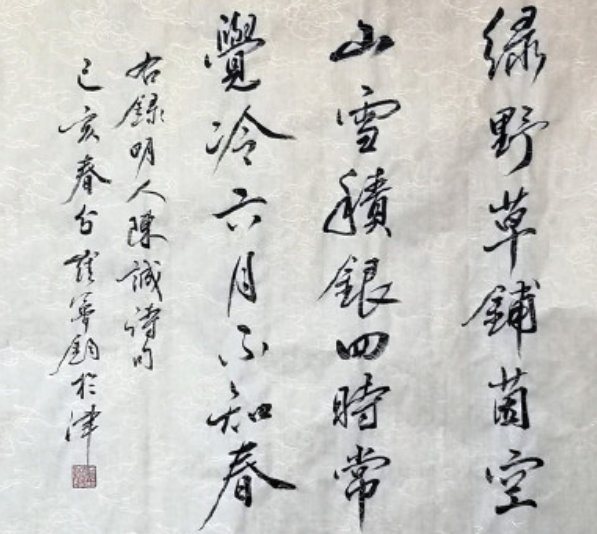 緑野草鋪茵空
山雪積銀四時常
覺冷六月不知春
右録明人陳誠詩句
己亥春分 於津